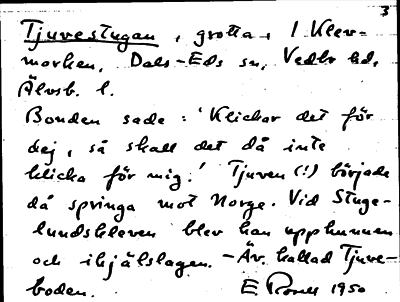 3
Tjuvestugan, grotta, I Klev-
marken, Dals-Eds sn, Vedbo hd,
Älvsb. l.
Bonden sade: 'Klickar det för
dej, så skall det då inte
klicka för mig.' Tjuven (!) började
då springa mot Norge. Vid Stuge-
lundskleven blev han upphunnen
och ihjälslagen. - Äv. kallad Tjuve-
boden. E 1950